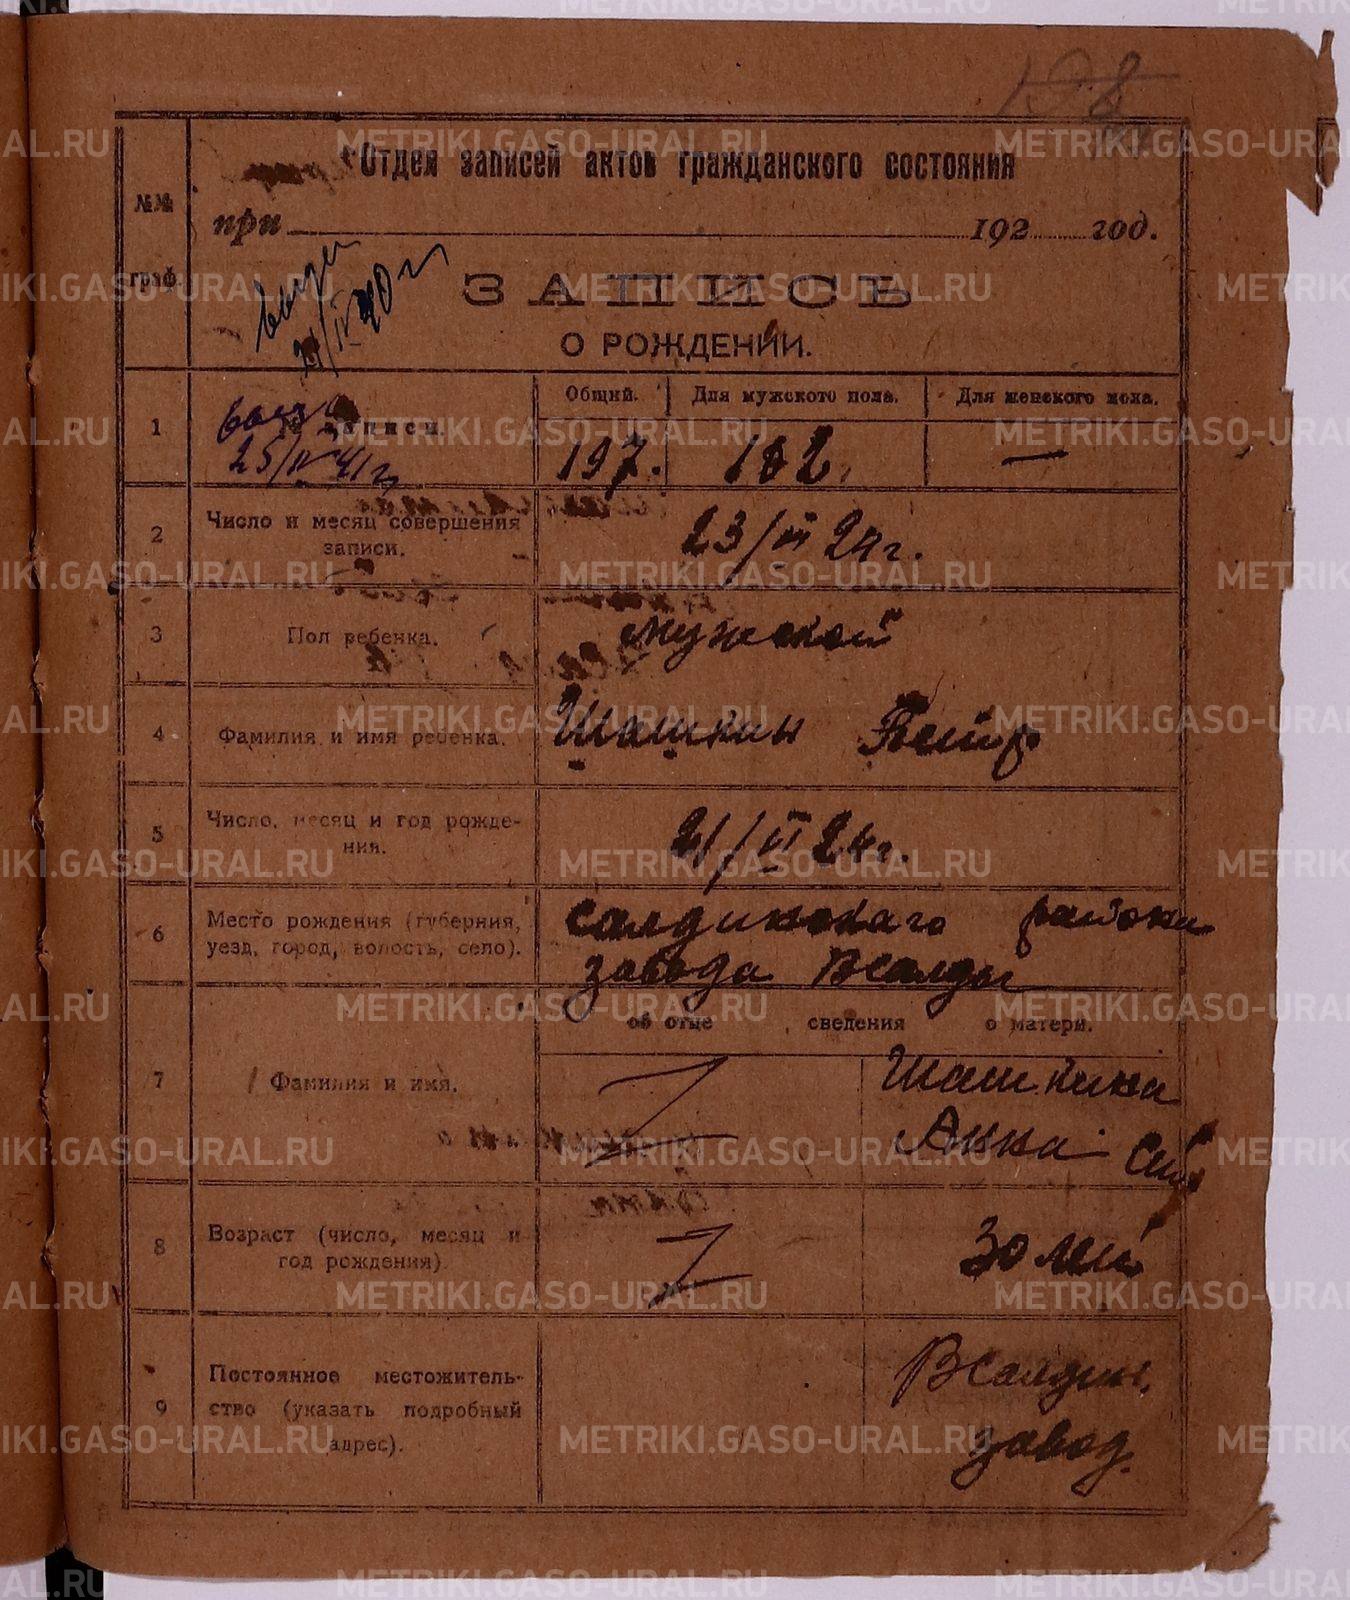 Отдел записей актов гражданского состояния
№№
при 192 год.
граф.
21/IV 40 г
ЗАПИСЬ
О РОЖДЕНИИ.
Общий. Для мужского пола. Для женского пола.
1 записи. 197. 102. —
25/IV 41 г.
2 Число и месяц совершения
записи.
23/III 24 г.
3 Пол ребенка. Мужской
4 Фамилия и имя ребенка. Шашкин Петр
5 Число, месяц и год рожде-
ния.
24 г.
6 Место рождения (губерния,
уезд, город, волость, село).
Салдинскаго района
завода ВСалды
об отце сведения о матери.
7 Фамилия и имя. Z Шашкина
Анна
8 Возраст (число, месяц и
год рождения).
Z 30 лет
9 Постоянное местожитель-
ство (указать подробный
адрес).
ВСалдин.
завод.
METRIKI.GASO-URAL.RU